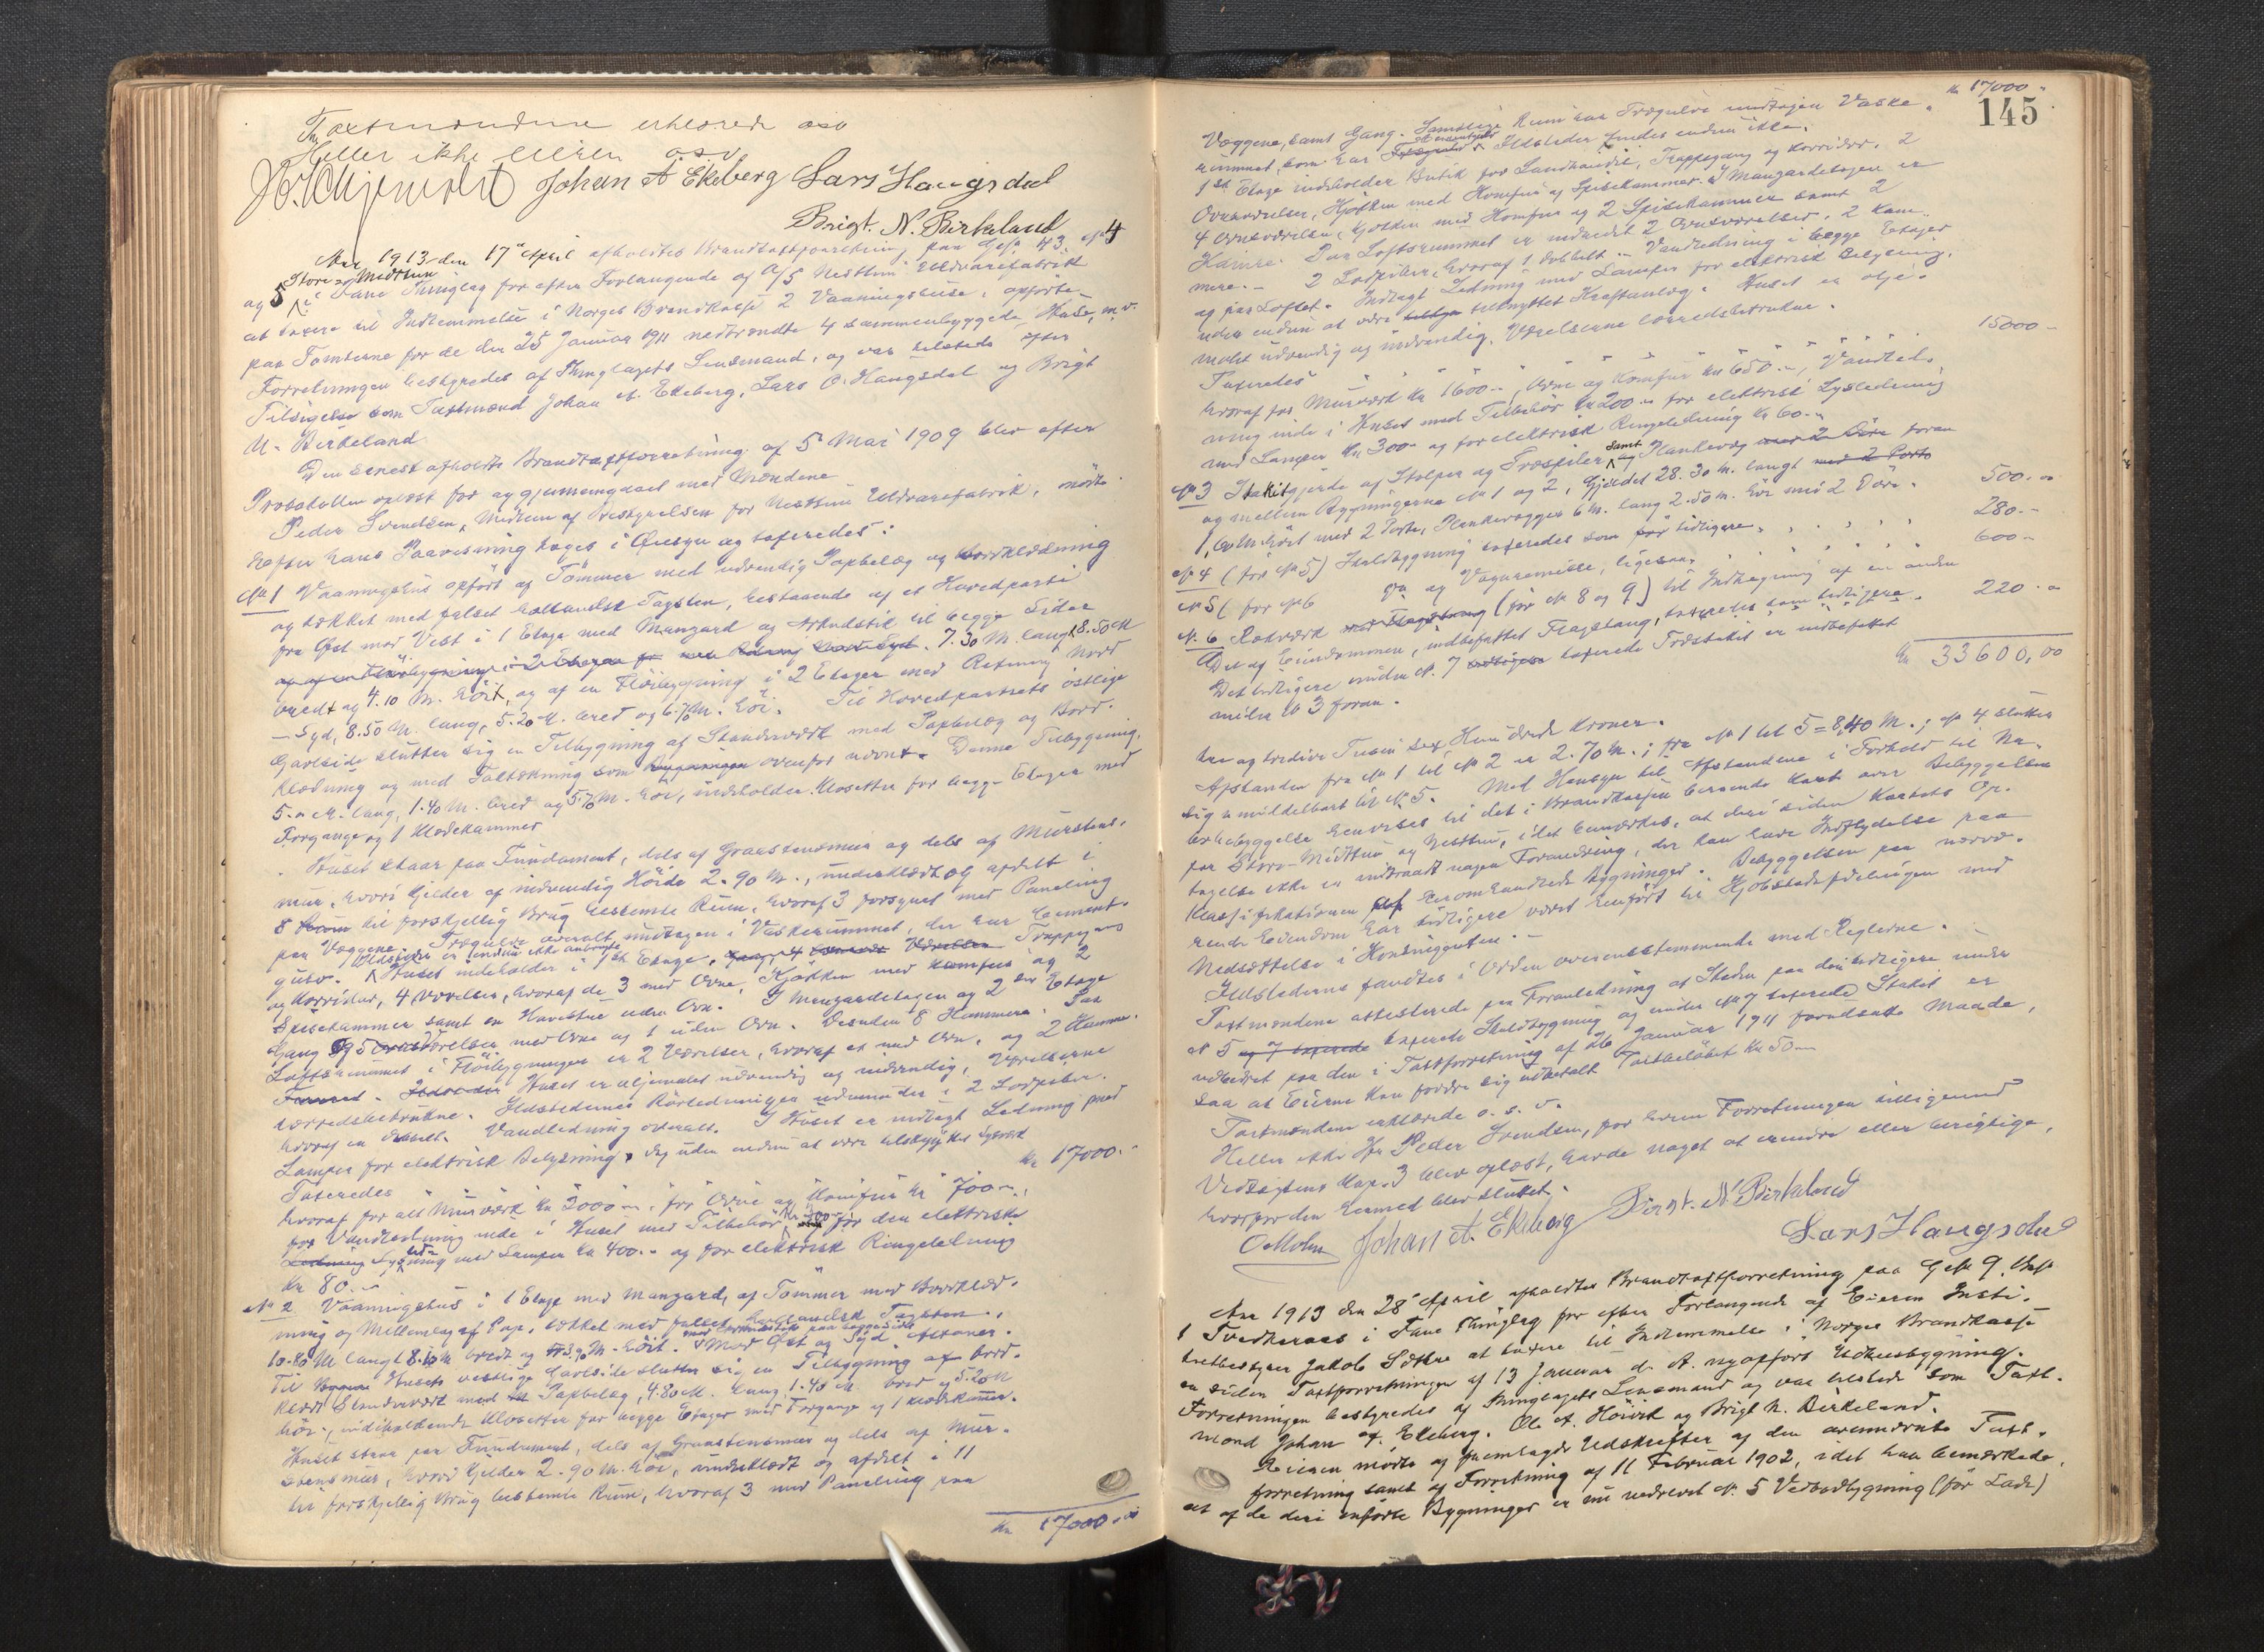 Taxtmændene erklærede osv
Heller ikke eieren osv
Johan A Ekeberg Lars Haugsdal
Brigt. N. Birkeland
Aar 1913 den 17de April afholdtes Brandtaxtforretning paa G.No 43. No 4
og 5 Store-Midttun i Fane Thinglag for efter Forlangende af A/S Nesttun Uldvarefabrik
at taxere til Indlemmelse i Norges Brandkasse 2 Vaaningshuse, opførte
paa Tomterne for de den 25 Januar 1911 nedbrændte 4 sammenbyggede Huse, m.v.
Forretningen bestyredes af Thinglagets Lensmand, og var tilstede efter
Tilsigelse som Taxtmænd Johan A. Ekeberg, Lars O. Haugsdal og Brigt
N. Birkeland
Den senest afholdte Brandtaxtforretning af 5 Mai 1909 blev efter
Protokollen oplæst for og gjennemgaaet med Mændene
Peder Svendsen, Medlem af Bestyrelsen for Nesttun Uldvarefabrik, mødte.
Efter hans Paavisning toges i Øiesyn og taxeredes:
No 1 Vaaningshus opført af Tømmer med udvendig Papbelæg og Bordklædning
og tækket med falset hollandsk Tagsten, bestaaende af et Hovedparti
fra Øst mod Vest i 1 Etage med Mangard og Arkudstik til begge Sider
7.30 M. langt, 8.50 M
bredt og 4.10 M. høit, og af en Fløibygning i 2 Etager med Retning Nord
- Syd, 8.50 M. lang, 5.20 M. bred og 6.70 M. høi. Til Hovedpartiets østlige
Gavlside slutter sig en Tilbygning af Standerværk med Papbelæg og Bord-
klædning og med Taktækning som ovenfor nævnt. Denne Tilbygning,
5.- M. lang, 1.40 M. bred og 5.70 M. høi, indeholder Klosetter for begge Etager med
Forgange og 1 Klædekammer
Huset staar paa Fundament, dels af Graastensmur og dels af Murstens-
mur, hvori Kjelder af indvendig Høide 2.90 M., underklædt og afdelt i
8 til forskjellig Brug bestemte Rum, hvoraf 3 forsynet med Paneling
paa Væggene. Trægulve overalt undtagen i Vaskerummet, der har Cement-
gulv. Ildsteder er endnu ikke anbragte. Huset indeholder i 1ste Etage, Trappegang
og Korridor, 4 Værelser, hvoraf de 3 med Ovne, Kjøkken med Komfur og 2
Spisekammer samt en Havestue uden Ovn. I Mangardetagen og 2den Etage
Gang og 5 Værelser med Ovne og 1 uden Ovn. Desuden 8 Kammere. Paa
Loftsrummet i Fløibygningen er 2 Værelser, hvoraf et med Ovn, og 2 Kamme-
Huset er oljemalet udvendig og indvendig, Værelserne
lærredsbetrukne. Ildstedernes Rørledninger udmunder i 2 Lodpiber.
hvoraf en dobbelt. Vandledning overalt. I Huset er indlagt Ledning med
Lamper for elektrisk Belysning, dog uden endnu at være tilknyttet
Taxeredes Kr 17000.-
hvoraf for alt Murværk Kr 3000.-, for Ovne og Komfur Kr 700.-,
for Vandledning inde i Huset med Tilbehør for den elektriske
med Lamper Kr 400.- og for elektrisk Ringeledning
Kr 80.-
No 2 Vaaningshus i 1 Etage med Mangard, af Tømmer med Bordklæd-
ning og Mellemlag af Pap, tækket med falset hollandsk Tagsten,
10.80 M langt 8.10 M bredt og 3.90 M. høit. med Arkudstik paa begge Sider Mod Øst og Syd Altaner.
Til Husets vestlige Gavlside slutter sig en Tilbygning af bord-
klædt Standerværk med Papbelæg, 4.80 M. lang, 1.40 M. bred og 5.20 M
høi, indeholdende Klosetter for begge Etager med Forgange og 1 Klædekammer.
Huset staar paa Fundament, dels af Graastensmur og dels af Mur-
stensmur, hvori Kjelder 2.90 M. høi, underklædt og afdelt i 11
til forskjellig Brug bestemte Rum, hvoraf 3 med Paneling paa
Kr 17000.00
Kr 17000.-
145
Væggene, samt Gang. Samtlige Rum har Trægulve undtagen Vaske-
rummet, som har Cementgulv. Ildsteder findes endnu ikke.
1ste Etage indeholder Butik for Landhandel, Trappegang og Korridor, 2
Ovnsværelser, Kjøkken med Komfur og Spisekammer. I Mangardetagen er
4 Ovnsværelser, Kjøkken med Komfur og 2 Spisekammer samt 2
Kamre. Paa Loftsrummet er indredet 2 Ovnsværelser, 2 Kam-
mere. - 2 Lodpiber, hvoraf 1 dobbelt. - Vandledning i begge Etager
og paa Loftet. Indlagt Ledning med Lamper for elektrisk Belysning,
uden endnu at være tilknyttet Kraftanlæg. Huset er olje-
malet udvendig og indvendig, Værelserne lærredsbetrukne.
Taxeredes 15000-
hvoraf for Murværk Kr 1600.-, Ovne og Komfur Kr 650.-, Vandled-
ning inde i Huset med Tilbehør Kr 200.- for elektrisk Lysledning
med Lamper Kr 300.- og for elektrisk Ringeledning Kr 60.-
No 3 Stakitgjerde af Stolper og Træspiler samt Plankevæg foran
og mellem Bygningerne No 1 og 2, Gjerdet 28.30 M. langt
1, høit med 2 Porte, Plankevæggen 6 M. lang 2.50 M. høi med 2 Døre. 500.-
No 4 (før No 5) Stald­bygning taxeredes som tidligere 280.-
No 5 (før No 6 og Vognremisse, ligesaa 600-
N. 6 Rækværk (før No 8 og 9) til Indhegning af en anden
Del af Eiendommen, indbefattet Flagstang, taxeredes som tidligere 220.-
Det tidligere under N. 7 taxerede Træstakit er indbefattet
under No 3 foran. Kr 33600,00
tre og tredive Tusind sex Hundrede Kroner.
Afstanden fra No 1 til No 2 er 2.70 M.; fra No 1 til 5 = 8,40 M.; No 4 slutter
sig umiddelbart til No 5. Med Hensyn til Afstandene i Forhold til Na-
bobebyggelse henvises til det i Brandkassen beroende Kart over Bebyggelsen
paa Store-Midttun og Nesttun, idet bemærkes, at deri siden Kartets Op-
tagelse ikke er indtraadt nogen Forandring, der kan have Indflydelse paa
Klassifikationen af heromhandlede Bygninger. Bebyggelsen paa nærvæ-
rende Eiendom har tidligere været henført til Kjøbstadsafdelingen med
Nedsættelse i Kontingenten. -
Ildstederne fandtes i Orden overensstemmende med Reglerne.
Taxtmændene attesterede paa Foranledning at Skaden paa den tidligere under
No 5 taxerede Staldbygning og under No 7 taxerede Stakit er
udbedret paa den i Taxtforretning af 26 Januar 1911 forudsatte Maade,
saa at Eierne kan fordre sig udbetalt Taxtbeløbet Kr 50.-
Taxtmændene erklærede o. s. v.
Heller ikke Hr Peder Svendsen, for hvem Forretningen tilligemed
Vedtægtens Kap. 3 blev oplæst, havde noget at erindre eller berigtige,
hvorfor den hermed blev sluttet.
O Molm Johan A. Ekeberg Brigt. N. Birkeland
Lars Haugsdal
Aar 1913 den 28de April afholdtes Brandtaxtforretning paa G No 9. BNo
1 Tvedteraas i Fane Thinglag for efter Forlangende af Eieren Insti-
tutbestyrer Jakob Sæthre at taxere til Indlemmelse i Norges Brandkasse
en siden Taxtforretningen af 13 Januar d. A. nyopført Udhusbygning.
Forretningen bestyredes af Thinglagets Lensmand og var tilstede som Taxt-
mænd Johan A. Ekeberg, Ole A. Høivik og Brigt N. Birkeland.
Eieren mødte og fremlagde Udskrifter af den ovennævnte Taxt-
forretning samt af Forretning af 11 Februar 1902, idet han bemærkede,
at af de deri anførte Bygninger er nu nedrevet No 5 Vedbodbygning (før Lade)